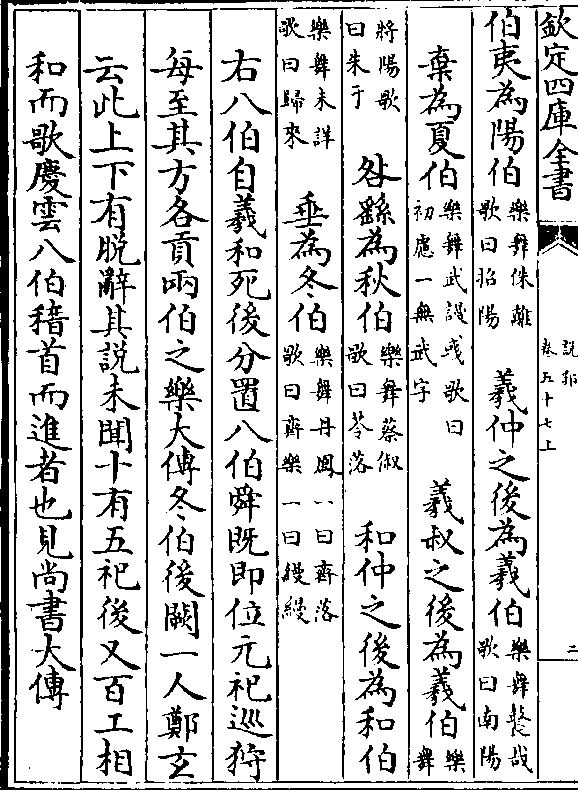 欽定四庫全書
說郛
卷五十七上
二
伯夷為陽伯樂舞侏離歌曰招陽 羲仲之後為羲伯樂舞鼚哉歌曰南陽
棄為夏伯樂舞武謾彧歌曰初慮一無武字 羲叔之後為羲伯樂舞
將陽歌曰朱于 咎繇為秋伯樂舞蔡俶歌曰苓落 和仲之後為和伯
樂舞未詳歌曰歸來 垂為冬伯樂舞丹鳳一曰齊落歌曰齊樂一曰縵縵
右八伯自羲和死後分置八伯舜既即位元祀巡狩
每至其方各貢兩伯之樂大傅冬伯後闕一人鄭玄
云此上下有脫辭其說未聞十有五祀後又百工相
和而歌慶雲八伯稽首而進者也見尚書大傳